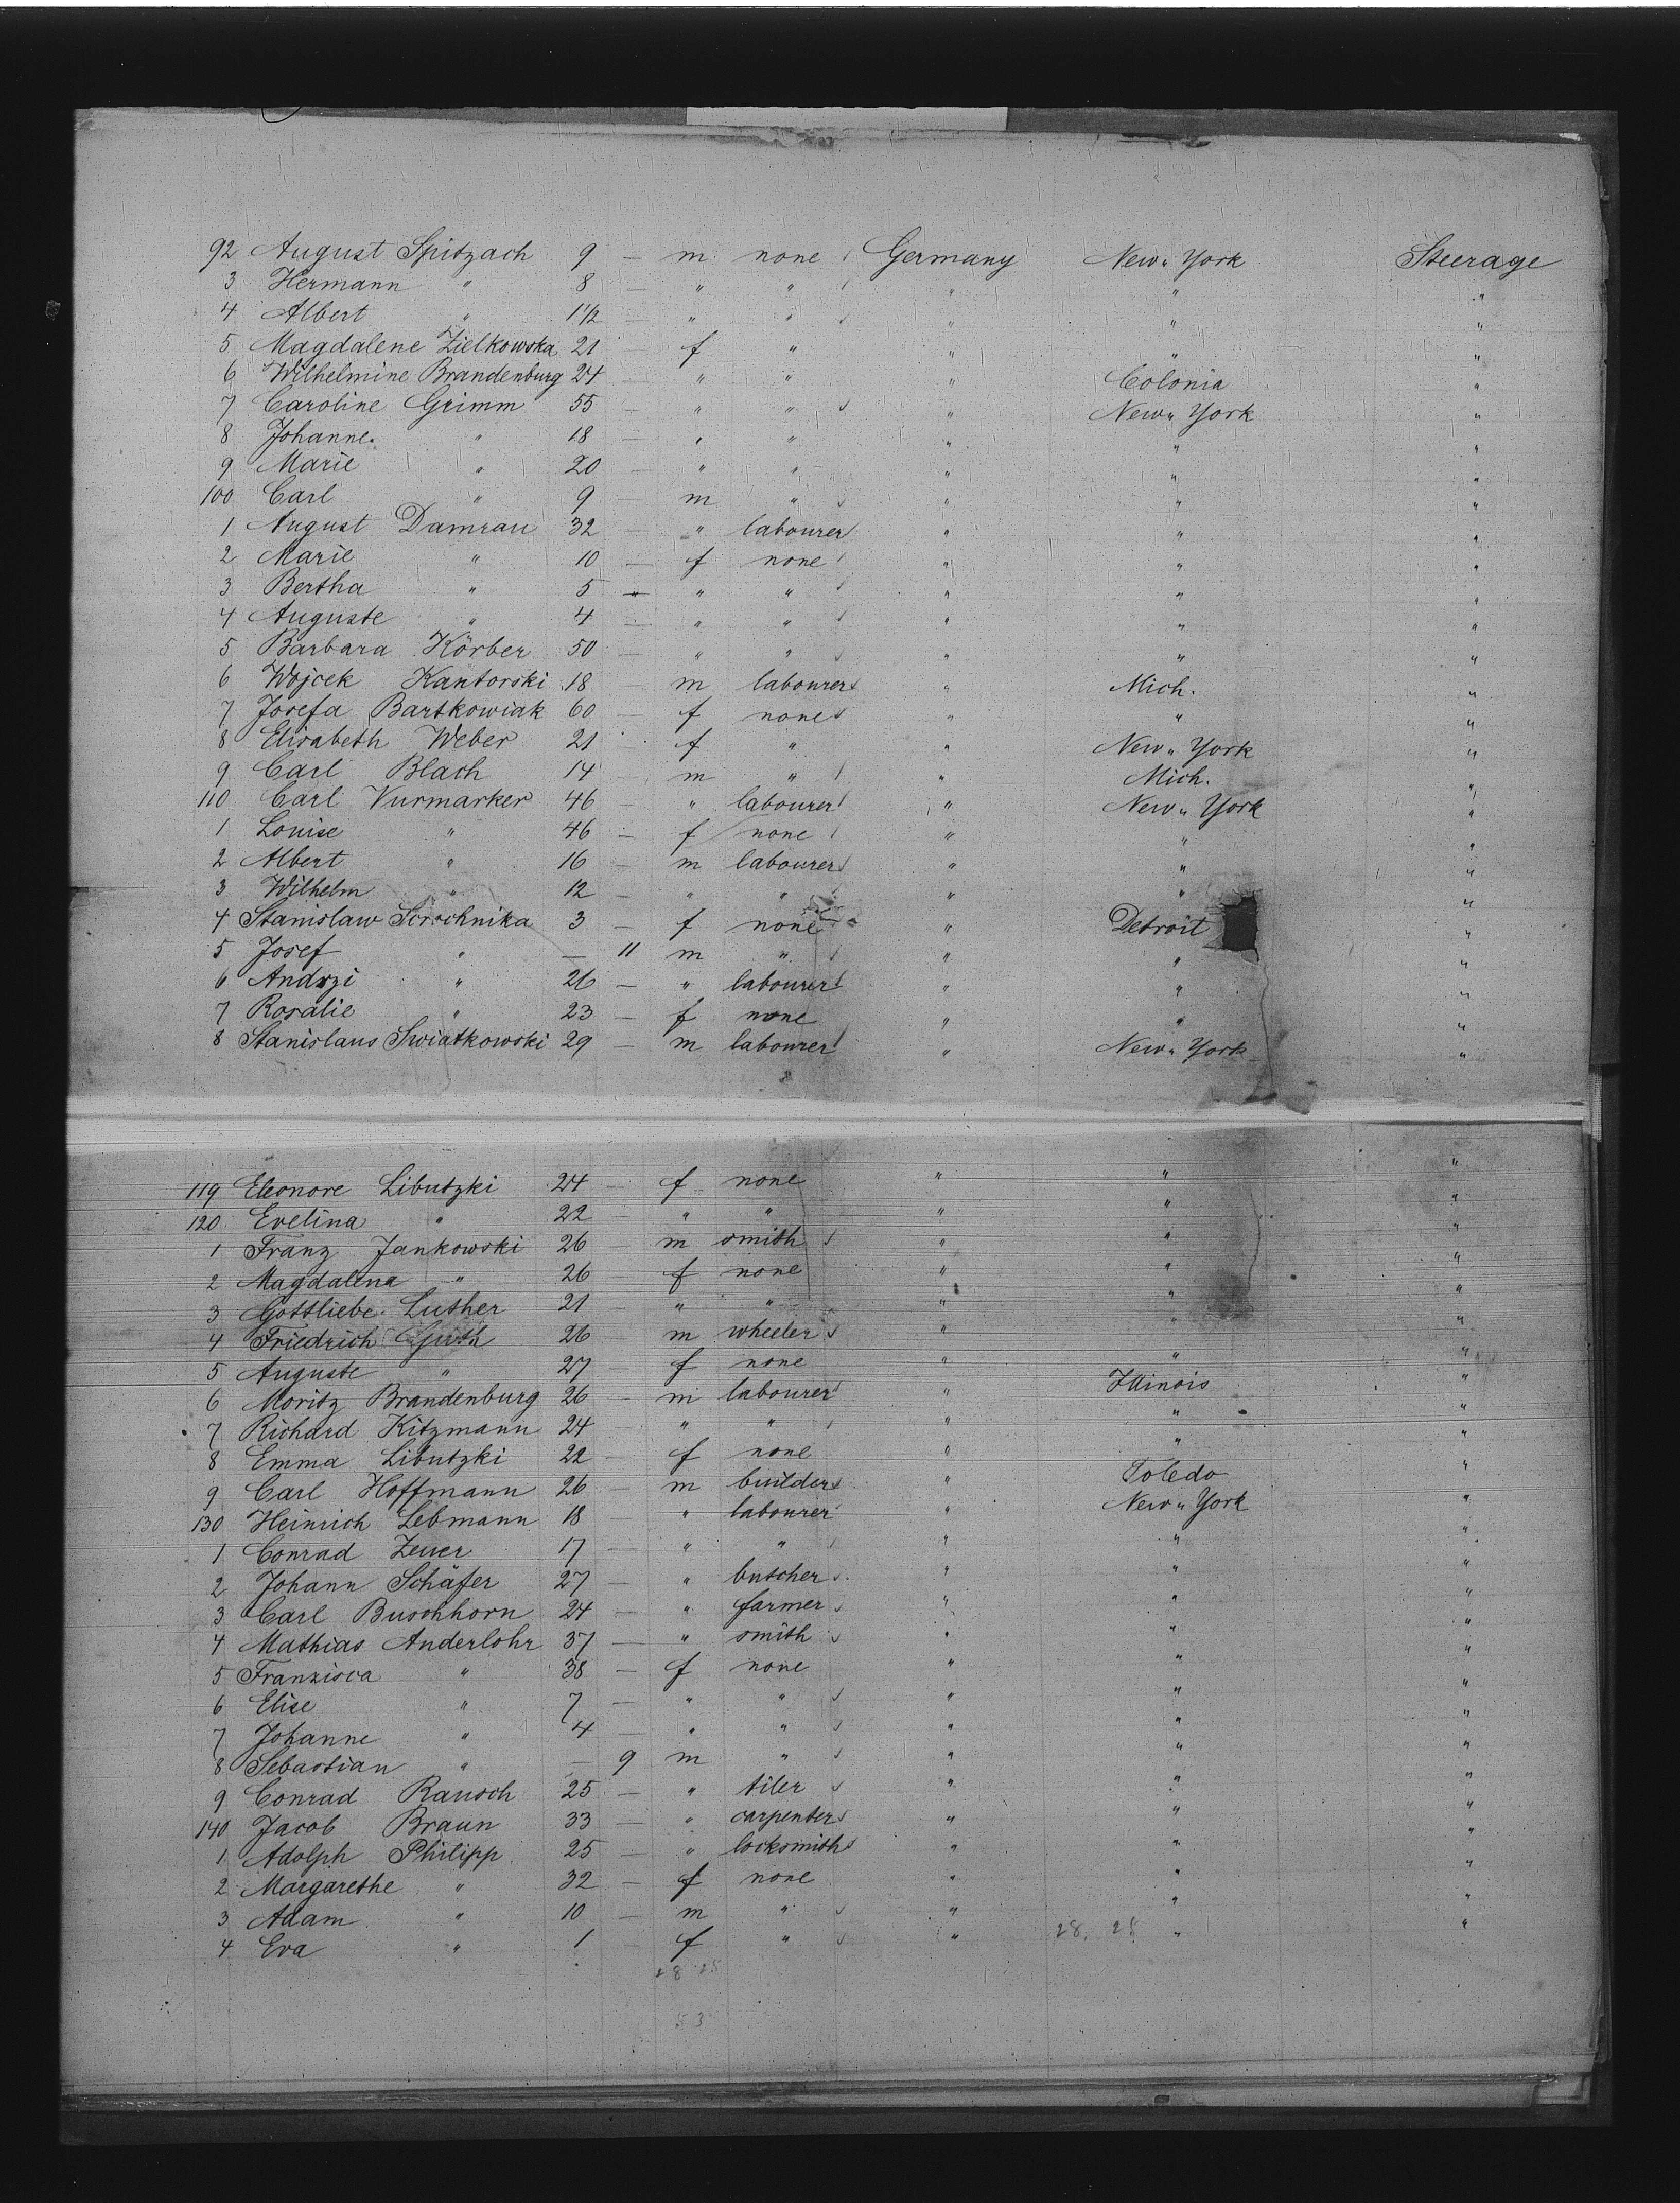 92 August Spitzach 9 — m none Germany New York Steerage
3 Hermann " 8 — " " " " "
4 Albert " 1 1/2 — " " " " "
5 Magdalene Zielkowska 21 — f " " " "
6 Wilhelmine Brandenburg 24 — " " " Colonia "
7 Caroline Grimm 55 — " " " New York "
8 Johanne " 18 — " " " " "
9 Marie " 20 — " " " " "
100 Carl " 9 — m " " " "
1 August Damrau 32 — " labourer " " "
2 Marie " 10 — f none " " "
3 Bertha " 5 — " " " " "
4 Auguste " 4 — " " " " "
5 Barbara Körber 50 — " " " " "
6 Wojcek Kantorski 18 — m labourer " Mich. "
7 Josefa Bartkowiak 60 — f none " " "
8 Elisabeth Weber 21 — f " " New York "
9 Carl Blach 14 — m " " Mich. "
110 Carl Vurmarker 46 — " labourer " New York "
1 Louise " 46 — f none " " "
2 Albert " 16 — m labourer " " "
3 Wilhelm " 12 — " " " " "
4 Stanislaw 3 — f none " Detroit "
5 Josef " — 11 m " " " "
6 Andrzi " 26 — " labourer " " "
7 Rosalie " 23 — f none " " "
8 Stanislaus Swiatkowski 29 — m labourer " New York "
119 Eleonore Libutzki 24 — f none " " "
120 Evelina " 22 — " " " " "
1 Franz Jankowski 26 — m smith " " "
2 Magdalena " 26 — f none " " "
3 Gottliebe Luther 21 — " " " " "
4 Friedrich Guth 26 — m wheeler " " "
5 Auguste " 27 — f none " " "
6 Moritz Brandenburg 26 — m labourer " Illinois "
7 Richard Kitzmann 24 — " " " " "
8 Emma Libutzki 22 — f none " " "
9 Carl Hoffmann 26 — m builder " Toledo "
130 Heinrich Lebmann 18 — " labourer " New York "
1 Conrad Zeuer 17 — " " " " "
2 Johann Schäfer 27 — " butcher " " "
3 Carl Buschhorn 24 — " farmer " " "
4 Mathias Anderlohr 37 — " smith " " "
5 Franzisca " 38 — f none " " "
6 Elise " 7 — " " " " "
7 Johanne " 4 — " " " " "
8 Sebastian " — 9 m " " " "
9 Conrad Rausch 25 — " tiler " " "
140 Jacob Braun 33 — " carpenter " " "
1 Adolph Philipp 25 — " locksmith " " "
2 Margarethe " 32 — f none " " "
3 Adam " 10 — m " " " "
4 Eva " 1 — f " " 28. 25 " "
28 25
53